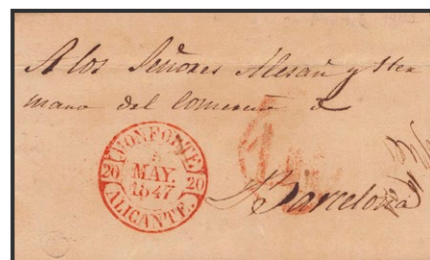 A los Señores Alesan y Her
mano del Comercio d
MONFORTE
5
MAY.
1847
20 20
ALICANTE.
Barcelona